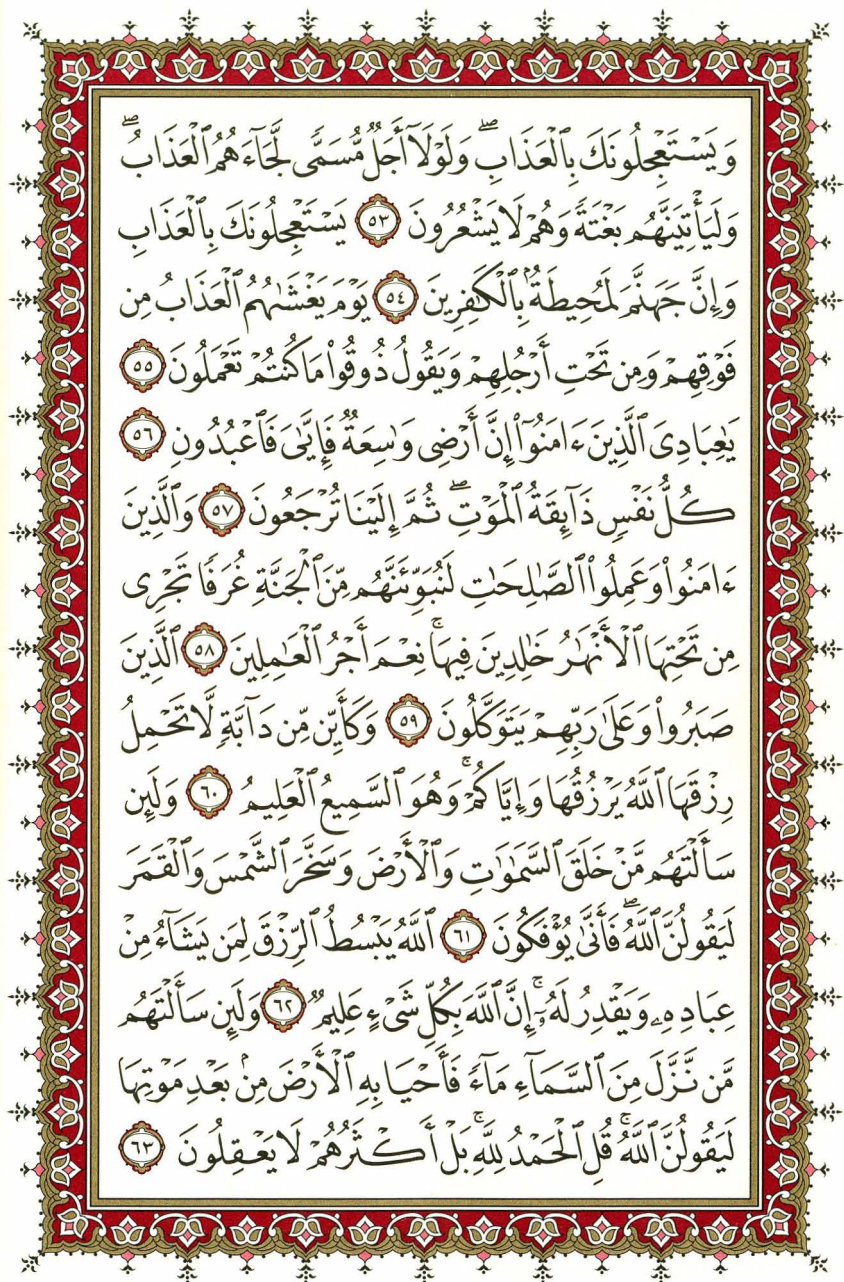 وَيَسْتَعْجِلُونَكَ بِٱلْعَذَابِ ۖ وَلَوْلَآ أَجَلٌ مُّسَمًّى لَّجَآءَهُمُ ٱلْعَذَابُ ۖ
وَلَيَأْتِيَنَّهُم بَغْتَةً وَهُمْ لَا يَشْعُرُونَ ٥٣ يَسْتَعْجِلُونَكَ بِٱلْعَذَابِ
وَإِنَّ جَهَنَّمَ لَمُحِيطَةٌۢ بِٱلْكَٰفِرِينَ ٥٤ يَوْمَ يَغْشَىٰهُمُ ٱلْعَذَابُ مِن
فَوْقِهِمْ وَمِن تَحْتِ أَرْجُلِهِمْ وَيَقُولُ ذُوقُوا۟ مَا كُنتُمْ تَعْمَلُونَ ٥٥
يَٰعِبَادِىَ ٱلَّذِينَ ءَامَنُوٓا۟ إِنَّ أَرْضِى وَٰسِعَةٌ فَإِيَّٰىَ فَٱعْبُدُونِ ٥٦
كُلُّ نَفْسٍ ذَآئِقَةُ ٱلْمَوْتِ ۖ ثُمَّ إِلَيْنَا تُرْجَعُونَ ٥٧ وَٱلَّذِينَ
ءَامَنُوا۟ وَعَمِلُوا۟ ٱلصَّٰلِحَٰتِ لَنُبَوِّئَنَّهُم مِّنَ ٱلْجَنَّةِ غُرَفًا تَجْرِى
مِن تَحْتِهَا ٱلْأَنْهَٰرُ خَٰلِدِينَ فِيهَا ۚ نِعْمَ أَجْرُ ٱلْعَٰمِلِينَ ٥٨ ٱلَّذِينَ
صَبَرُوا۟ وَعَلَىٰ رَبِّهِمْ يَتَوَكَّلُونَ ٥٩ وَكَأَيِّن مِّن دَآبَّةٍ لَّا تَحْمِلُ
رِزْقَهَا ٱللَّهُ يَرْزُقُهَا وَإِيَّاكُمْ ۚ وَهُوَ ٱلسَّمِيعُ ٱلْعَلِيمُ ٦٠ وَلَئِن
سَأَلْتَهُم مَّنْ خَلَقَ ٱلسَّمَٰوَٰتِ وَٱلْأَرْضَ وَسَخَّرَ ٱلشَّمْسَ وَٱلْقَمَرَ
لَيَقُولُنَّ ٱللَّهُ ۖ فَأَنَّىٰ يُؤْفَكُونَ ٦١ ٱللَّهُ يَبْسُطُ ٱلرِّزْقَ لِمَن يَشَآءُ مِنْ
عِبَادِهِۦ وَيَقْدِرُ لَهُۥٓ ۚ إِنَّ ٱللَّهَ بِكُلِّ شَىْءٍ عَلِيمٌ ٦٢ وَلَئِن سَأَلْتَهُم
مَّن نَّزَّلَ مِنَ ٱلسَّمَآءِ مَآءً فَأَحْيَا بِهِ ٱلْأَرْضَ مِنۢ بَعْدِ مَوْتِهَا
لَيَقُولُنَّ ٱللَّهُ ۚ قُلِ ٱلْحَمْدُ لِلَّهِ ۚ بَلْ أَكْثَرُهُمْ لَا يَعْقِلُونَ ٦٣